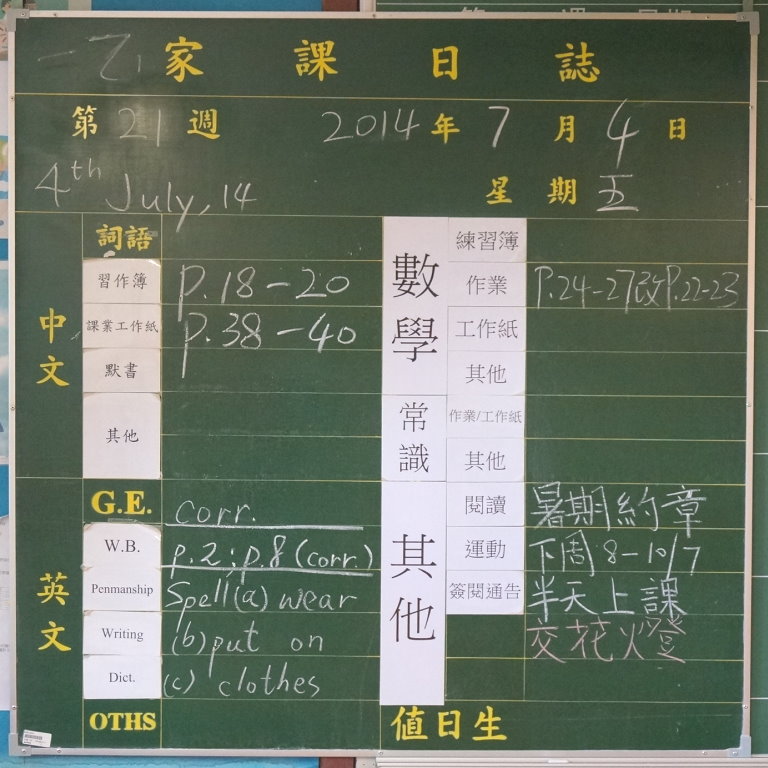 一乙 家課日誌
第21週 2014年7月4日
4th July, 14 星期五
中文
詞語
習作簿 p.18-20
課業工作紙 p.38-40
默書
其他
英文
G.E. corr.
W.B. p.2; p.8 (corr.)
Penmanship Spell (a) wear
Writing (b) put on
Dict. (c) clothes
OTHS
數學
練習簿
作業 P.24-27改P.22-23
工作紙
其他
常識
作業/工作紙
其他
其他
閱讀 暑期約章
運動 下周8-10/7
簽閱通告 半天上課
交花燈
值日生